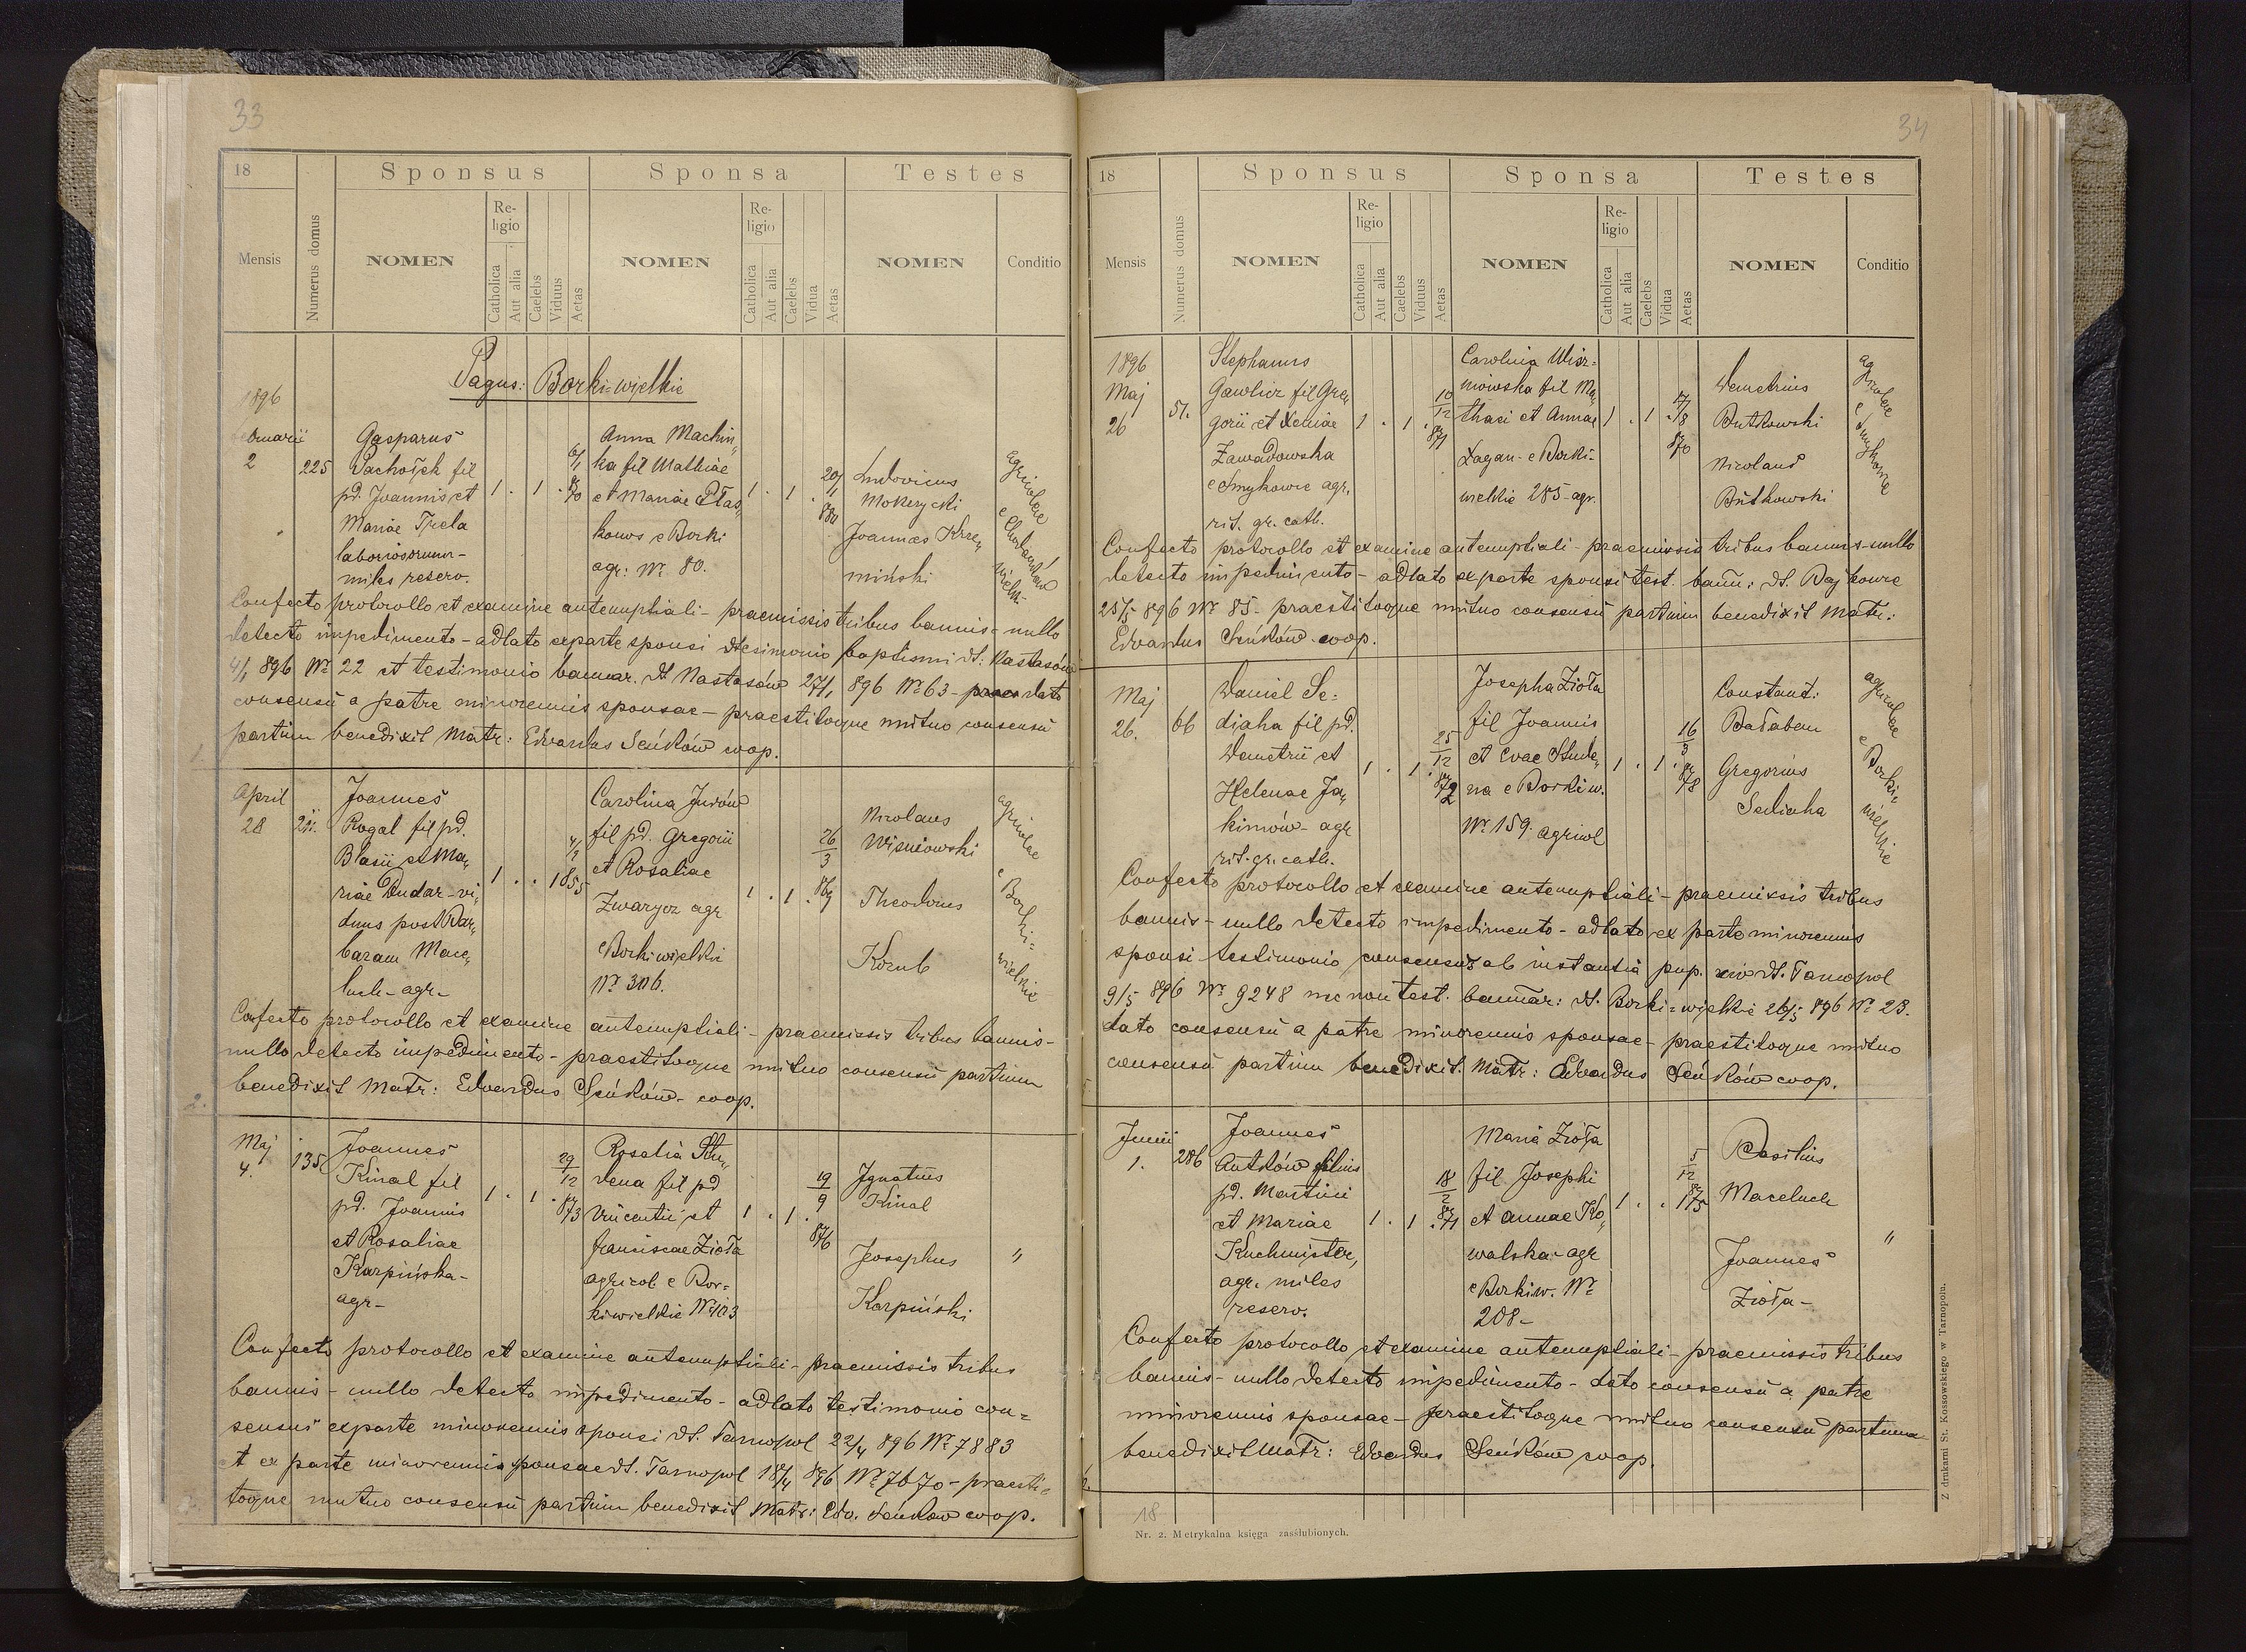 33
18
Sponsus
Sponsa
Testes
Mensis
Numerus domus
NOMEN
Religio
Catholica
Aut alia
Caelebs
Viduus
Aetas
NOMEN
Religio
Catholica
Aut alia
Caelebs
Vidua
Aetas
NOMEN
Conditio
Pagus: Borki-wielkie
1896
Februarii
2
225
Gasparus
Pachołek fil
pd. Joannis et
Mariae Trela
laboriosorum-
miles reserv.
1 . 1 .
Anna Machin„
ka fil Mathiae
et Mariae
e Borki
agr: Nr 80.
1 . 1 .
Ludovicus
Joannes Krze„
miński
agricolae
Confecto protocollo et examine antenuptiali - praemissis tribus bannis - nullo
detecto impedimento - adlato exparte sponsi baptismi dt. Nastasów
4/1 896 Nr 22 et testimonio bannar. dt Nastasów 27/1 896 Nr 63 - dato
consensū a patre minorennis sponsae - praestitoque mutuo consensū
partium benedixit Matr: Edvardus Seńków coop.
1.
April
28
Joannes
Rogal fil pd.
Blasii et Ma„
riae Dudar - vi„
duus post Bar„
baram Mace„
luch - agr -
1 . . 1 855
Carolina Jurów
fil pd. Gregorii
et Rosaliae
Zwarycz agr
e Borki wielkie
Nr 306.
1 . 1 .
26
3
869
Nicolaus
Wiśniowski
Theodorus
Kozub
agricolae
e Borki-
wielkie
Confecto protocollo et examine antenuptiali - praemissis tribus bannis -
nullo detecto impedimento - praestitoque mutuo consensū partium
benedixit Matr: Edvardus Seńków - coop.
2.
Maj
4.
135
Joannes
Kinal fil
pd. Joannis
et Rosaliae
Karpińska -
agr -
1 . 1 .
29
12
873
Rosalia Stu„
dena fil pd
Vincentii et
franciscae Zioła
agricol e Bor-
ki wielkie Nr 103
1 . 1 .
19
9
876
Ignatius
Kinal
Josephus
Karpiński
"
Confecto protocollo et examine antenuptiali - praemissis tribus
bannis - nullo detecto impedimento - adlato testimonio con-
sensus exparte minorennis sponsi dt. Tarnopol 22/4 896 Nr 7883
et ex parte minorennis sponsae dt. Tarnopol 18/4 896 Nr 7670 - praesti-
toque mutuo consensū partium benedixit Matr: Edv. Seńków coop.
34
18
Sponsus
Sponsa
Testes
Mensis
Numerus domus
NOMEN
Religio
Catholica
Aut alia
Caelebs
Viduus
Aetas
NOMEN
Religio
Catholica
Aut alia
Caelebs
Vidua
Aetas
NOMEN
Conditio
1896
Maj
26
51.
Stephanus
Gawlicz fil Gre„
gorii et Xeniae
Zawadowska
e Smykowce agr,
rit. gr. cath.
1 . 1 .
10
12
871
Carolina Wisz-
niowska fil Ma„
thaei et Annae
Łagan - e Borki-
wielkie 285 - agr.
1 . 1 .
870
Demetrius
Butkowski
Nicolaus
Butkowski
agricolae
e Smykowce
Confecto protocollo et examine antenuptiali - praemissis tribus bannis - nullo
detecto impedimento - adlato ex parte sponsi test. bann: dt. Bajkowce
25/5 896 Nr 85 - praestitoque mutuo consensū partium benedixit Matr:
Edvardus Seńków - coop.
Maj
26.
66
Daniel Se-
diaha fil pd.
Demetrii et
Helenae Ja„
kimów - agr
rit. gr. cath.
1 . 1 .
25
12
872
Josepha Zioła
fil Joannis
et Evae Stude„
na e Borki w.
Nr 159. agricol
1 . 1 .
16
3
878
Constant:
Bałaban
Gregorius
Sediaha
agricolae
e Borki-
wielkie
Confecto protocollo et examine antenuptiali - praemissis tribus
bannis - nullo detecto impedimento - adlato ex parte minorennis
sponsi testimonio consensus ab instantia pup. dt. Tarnopol
9/5 896 Nr 9248 nec non test. bannar: dt. Borki-wielkie 26/5 896 Nr 23.
dato consensū a patre minorennis sponsae - praestitoque mutuo
consensū partium benedixit. Matr: Edvardus Seńków coop.
Junii
1.
286
Joannes
Antków filius
pd. Martini
et Mariae
Kuchmister,
agr. miles
reserv.
1 . 1 .
18
2
871
Maria Zioła
fil Josephi
et Annae Ko„
walska - agr
e Borki w. Nr
208 -
1 . . 1
5
12
875
Basilius
Maceluch
Joannes
Zioła -
"
Confecto protocollo et examine antenuptiali - praemissis tribus
bannis - nullo detecto impedimento - dato consensū a patre
minorennis sponsae - praestitoque mutuo consensū partium
benedixit Matr: Edvardus Seńków coop.
18
Nr. 2. Metrykalna księga zaślubionych.
Z drukarni St. Kossowskiego w Tarnopolu.